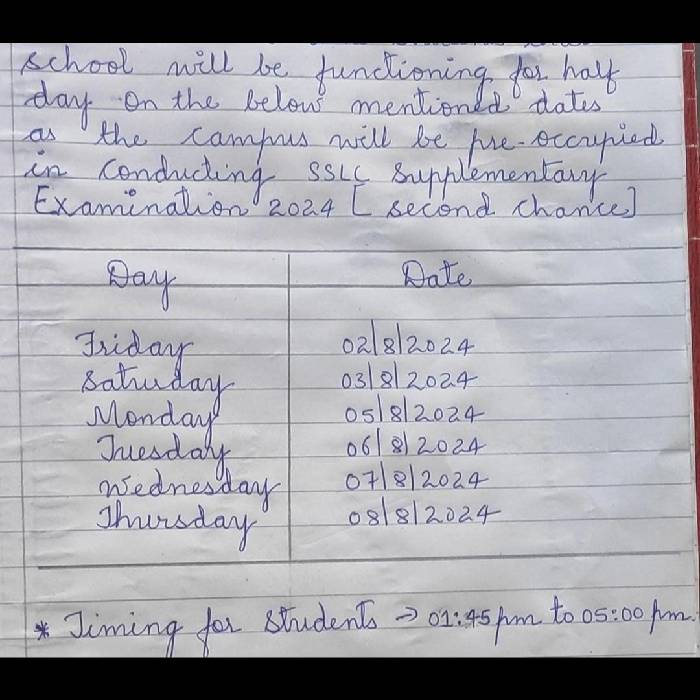 school will be functioning for half
day on the below mentioned dates
as the campus will be pre-occupied
in conducting SSLC Supplementary
Examination 2024 [second chance]
Day Date
Friday 02/8/2024
Saturday 03/8/2024
Monday 05/8/2024
Tuesday 06/8/2024
Wednesday 07/8/2024
Thursday 08/8/2024
* Timing for Students → 01:45 pm to 05:00 pm.